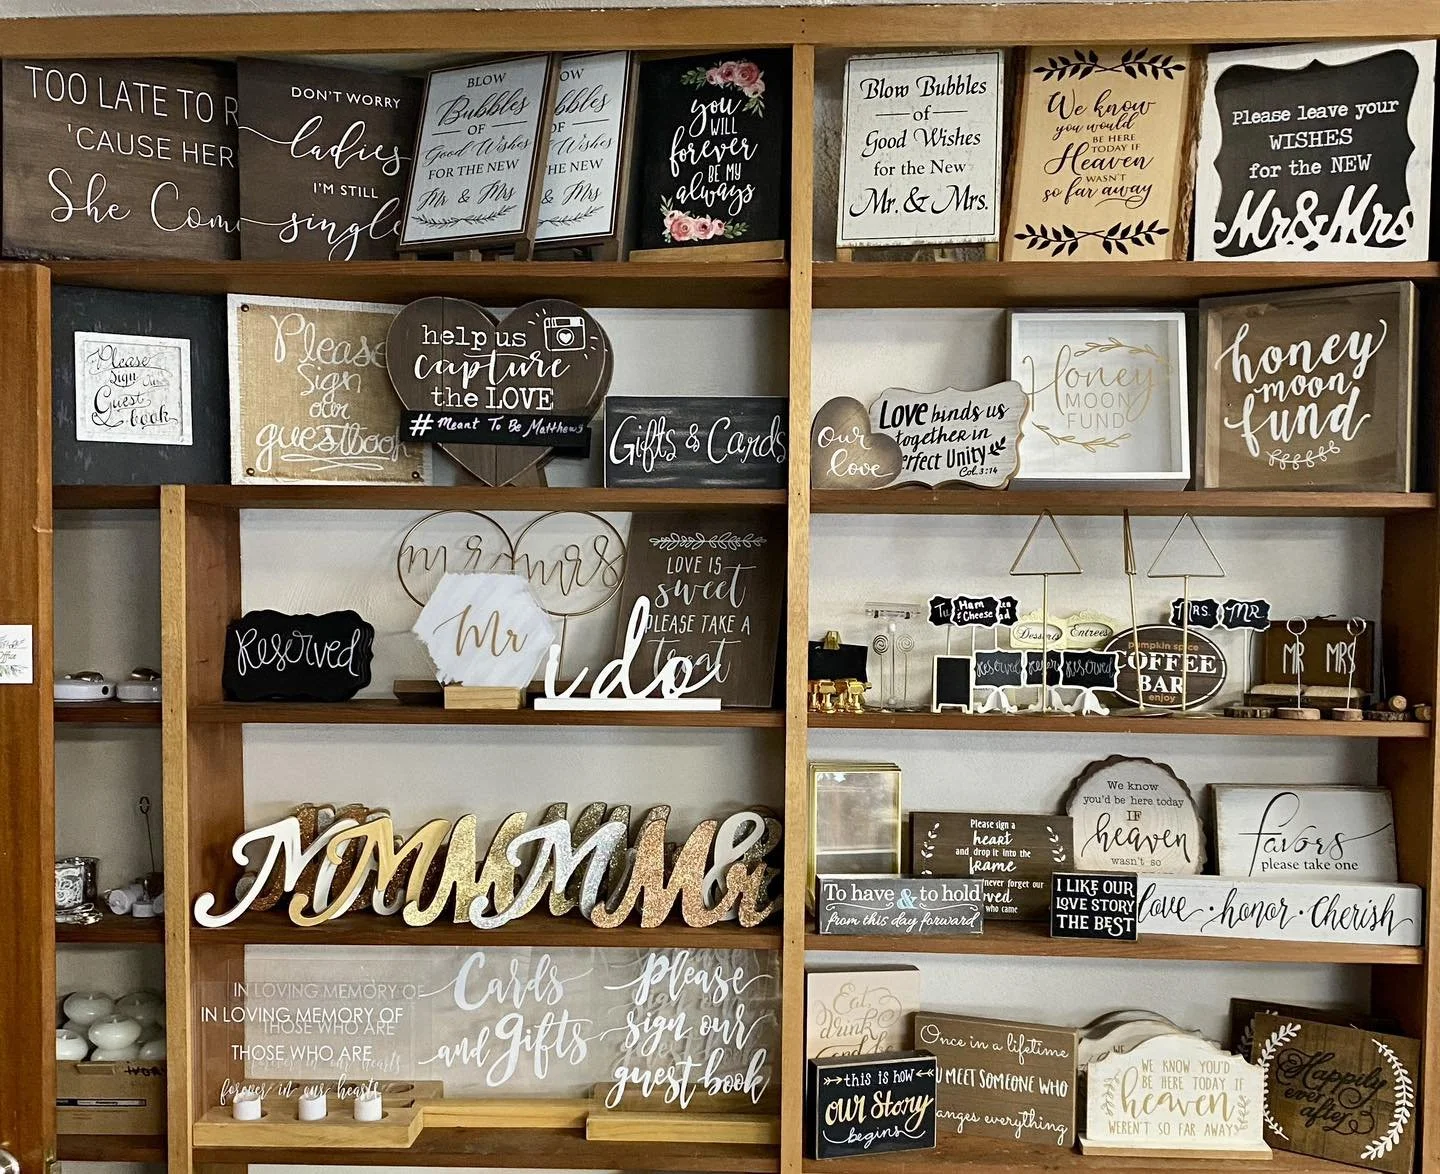 TOO LATE TO R
'CAUSE HER
She Com
DON'T WORRY
ladies
I'M STILL
single
BLOW
Bubbles
OF
Good Wishes
FOR THE NEW
Mr & Mrs
OW
bbles
OF
Wishes
HE NEW
& Mrs
you
WILL
forever
BE MY
always
Blow Bubbles
of
Good Wishes
for the New
Mr. & Mrs.
We know
you would
BE HERE
TODAY IF
Heaven
WASN'T
so far away
Please leave your
WISHES
for the NEW
Mr & Mrs
Please
Sign Our
Guest
book
Please
Sign
our
guestbook
help us
Capture
the LOVE
# Meant To Be Matthews
Gifts & Cards
our
love
LOVE binds us
together in
erfect Unity
Col. 3:14
Honey
MOON
FUND
honey
moon
fund
Reserved
mr
mrs
Mr
i do
LOVE IS
sweet
PLEASE TAKE A
treat
Tu
Ham
& Cheese
Desserts
Entrees
Reserved
Reser
Reserved
pumpkin spice
COFFEE
BAR
enjoy
MRS.
MR
MR
MRS
office
M
M
M
M
Mr
&
Please sign a
heart
and drop it into the
frame
never forget our
who came
We know
you'd be here today
IF
heaven
wasn't so
favors
please take one
To have & to hold
from this day forward
I LIKE OUR
LOVE STORY
THE BEST
love · honor · cherish
IN LOVING MEMORY OF
IN LOVING MEMORY OF
THOSE WHO ARE
THOSE WHO ARE
forever in our hearts
forever in our hearts
Cards
and Gifts
Please
sign our
guest book
Eat,
drink
this is how
our Story
begins
Once in a lifetime
U MEET SOMEONE WHO
anges everything
WE
WE KNOW YOU'D
BE HERE TODAY IF
heaven
WEREN'T SO FAR AWAY
Happily
ever
after
IVORY